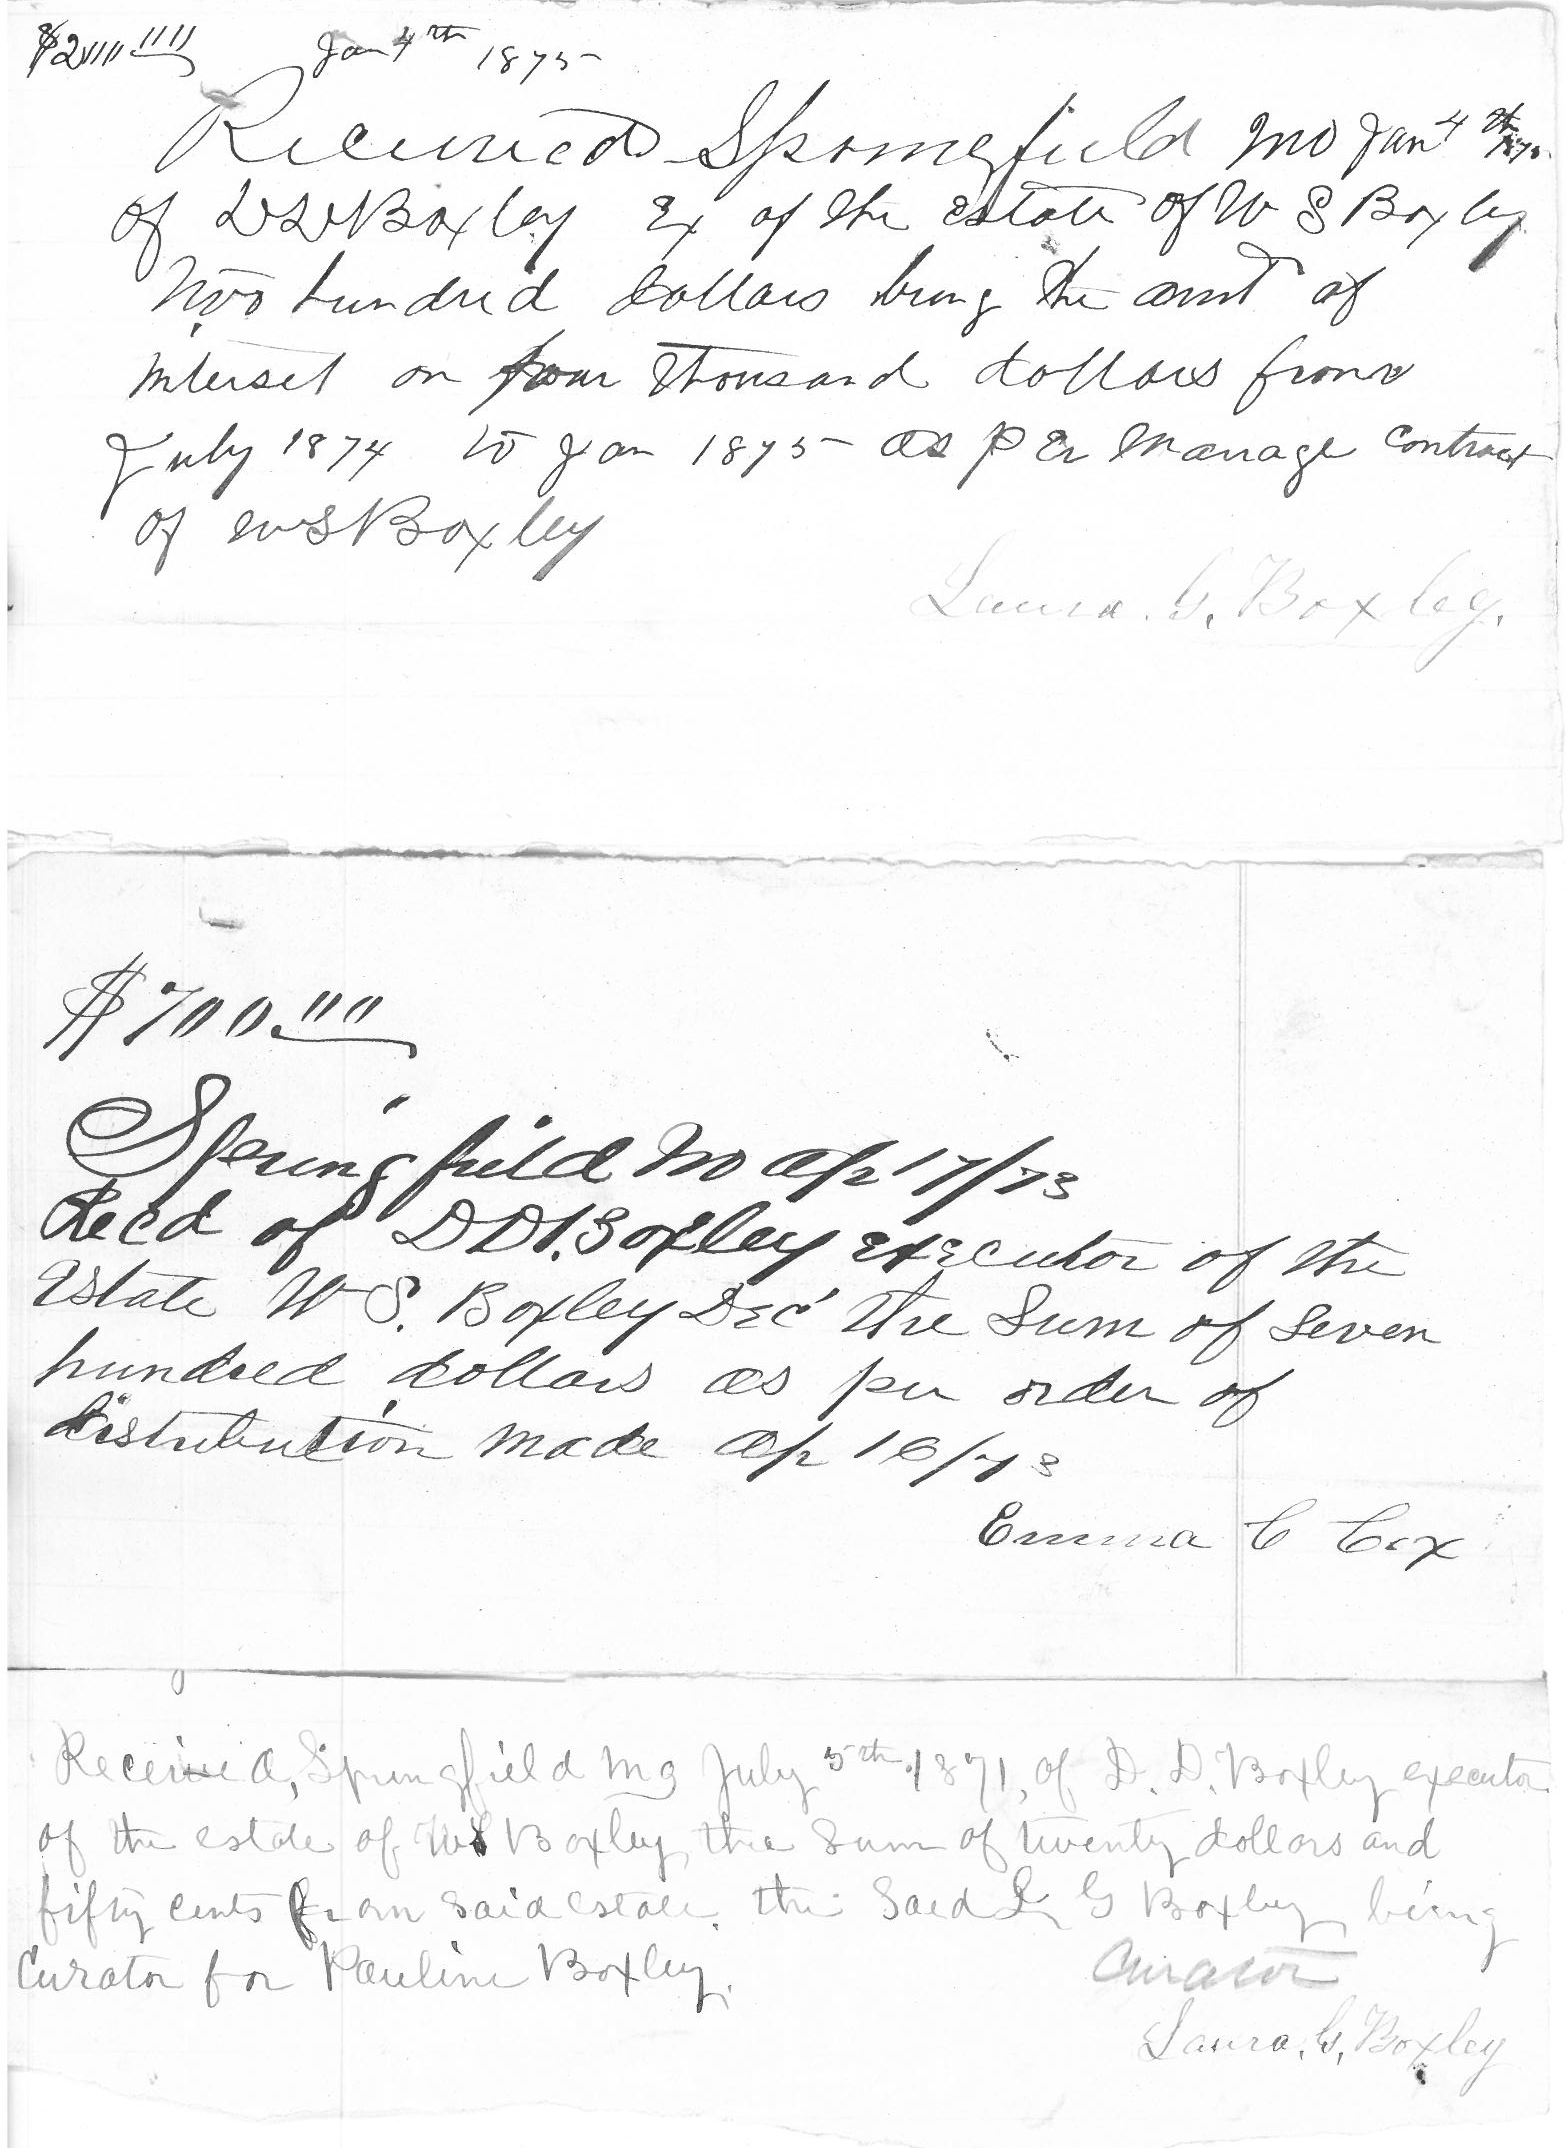 $200 00 Jan 4th 1875
Received Springfield Mo Jan 4th 1875
of DD Boxley Ex of the estate of W S Boxley
Two hundred dollars being the amt of
interset on four thousand dollars from
July 1874 to Jan 1875 as per Marriage Contract
of W S Boxley
Laura. G. Boxley.
$700.00
Springfield Mo Ap 17/73
Recd of DD Boxley executor of the
Estate W S. Boxley Dec' the Sum of Seven
hundred dollars as per order of
distribution made Ap 16/73
Emma C Cox
Received, Springfield Mo July 5th 1871, of D. D. Boxley executor
of the estate of WS Boxley the Sum of twenty dollars and
fifty cents from said estate. the Said L G Boxley being
Curator for Pauline Boxley.
Curator
Laura. G. Boxley